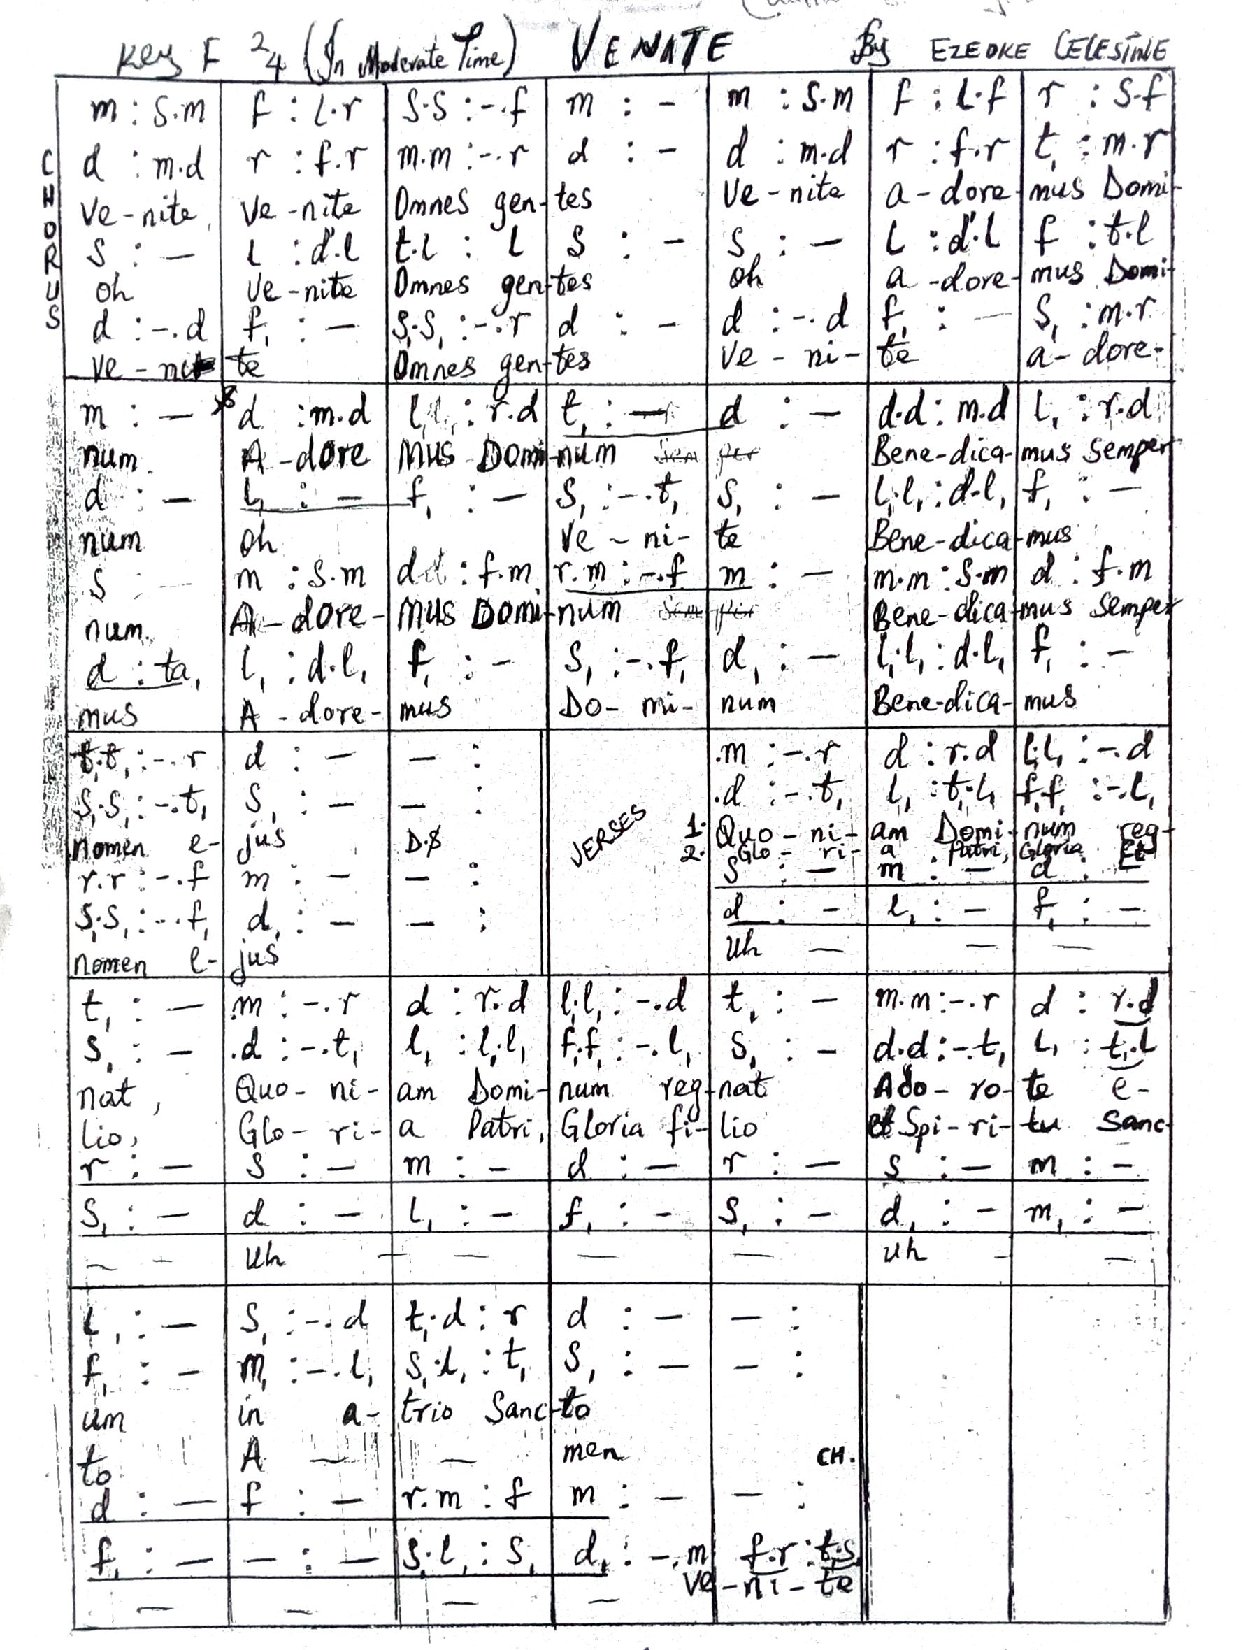 Key F 2/4 (In Moderate Time) VENATE By EZEOKE CELESTINE
CHORUS
m : s.m f : l.r s.s : -.f m : - m : s.m f : l.f r : s.f
d : m.d r : f.r m.m : -.r d : - d : m.d r : f.r t, : m.r
Ve-nite, Ve-nite Omnes gen-tes Ve-nite a-dore-mus Domi-
s : - l : d'.l t.l : l s : - s : - l : d'.l f : t.l
oh Ve-nite Omnes gen-tes oh a-dore-mus Domi-
d : -.d f, : - s,.s, : -.r d : - d : -.d f, : - s, : m.r
Ve-ni te Omnes gen-tes Ve-ni-te a-dore-
m : - d : m.d l,.l, : r.d t, : - d : - d.d : m.d l, : r.d
num A-dore mus Domi-num Bene-dica-mus semper
d : - l, : - f, : - s, : -.t, s, : - l,.l, : d.l, f, : -
num oh Ve-ni-te Bene-dica-mus
s : - m : s.m d.d : f.m r.m : -.f m : - m.m : s.m d : f.m
num. A-dore-mus Domi-num Bene-dica-mus semper
d : ta, l, : d.l, f, : - s, : -.f, d, : - l,.l, : d.l, f, : -
mus A-dore-mus Do-mi-num Bene-dica-mus
t,.t, : -.r d : - - : .m : -.r d : r.d l,.l, : -.d
s,.s, : -.t, s, : - - : VERSES .d : -.t, l, : t,.l, f,.f, : -.l,
nomen e-jus D.S 1. Quo-ni-am Domi-num reg-
2. Glo-ri-a Patri, Gloria
r.r : -.f m : - - : s : - m : - d : -
s,.s, : -.f, d, : - - : d : - l, : - f, : -
nomen e-jus Uh - - -
t, : - .m : -.r d : r.d l,.l, : -.d t, : - m.m : -.r d : r.d
s, : - .d : -.t, l, : l,.l, f,.f, : -.l, s, : - d.d : -.t, l, : t,.l
nat, Quo-ni-am Domi-num reg-nat Ado-ro-te e-
lio, Glo-ri-a Patri, Gloria fi-lio et Spi-ri-tu Sanc-
r : - s : - m : - d : - r : - s : - m : -
s, : - d : - l, : - f, : - s, : - d, : - m, : -
- - Uh - - - - Uh - -
l, : - s, : -.d t,.d : r d : - - :
f, : - m, : -.l, s,.l, : t, s, : - - :
um in a-trio Sanc-to
to A - - men CH.
d : - f : - r.m : f m : - - :
f, : - - : - s,.l, : s, d, : -.m f.r : t,.s,
Ve-ni-te
- - - -